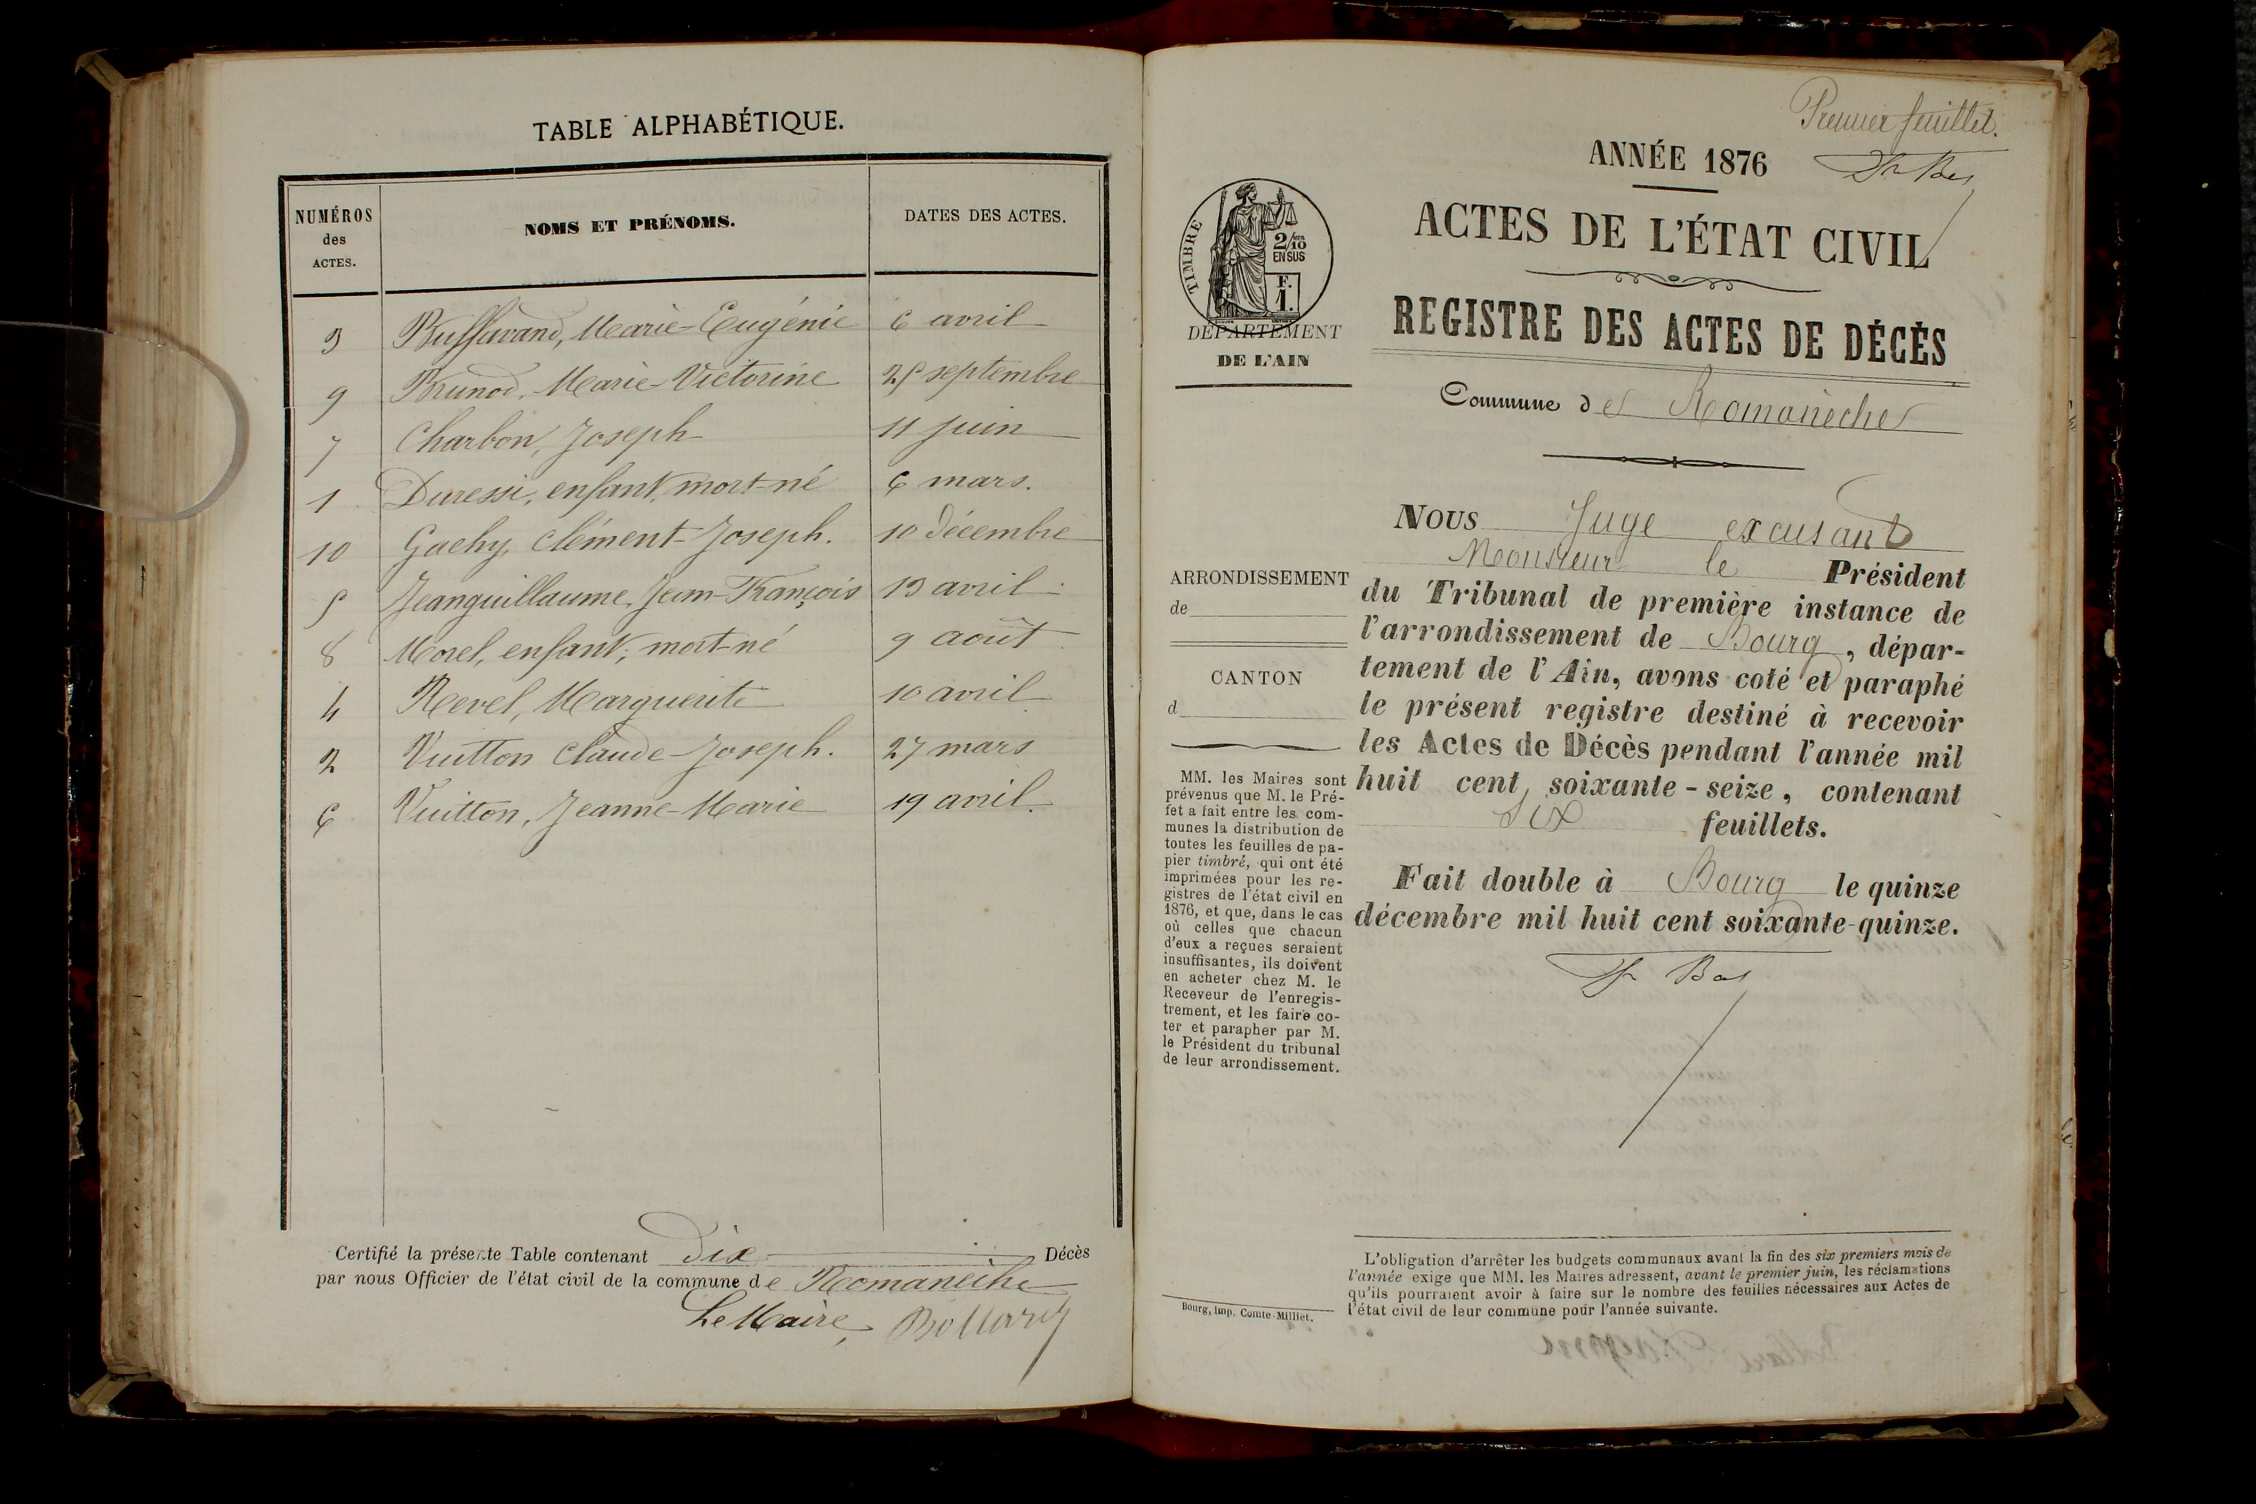 TABLE ALPHABÉTIQUE.
NUMÉROS
des
ACTES.
NOMS ET PRÉNOMS.
DATES DES ACTES.
3 Buffavand, Marie-Eugénie 6 avril
9 Brunod, Marie-Victorine 25 septembre
7 Charbon, Joseph 11 juin
1 Duressi, enfant, mort-né 6 mars.
10 Gachy, Clément-Joseph. 10 décembre
5 Jeanguillaume, Jean-François 13 avril
8 Morel, enfant, mort-né 9 août
4 Revel, Marguerite 10 avril
2 Vuitton Claude-Joseph. 27 mars
6 Vuitton, Jeanne-Marie 19 avril.
Certifié la présente Table contenant dix Décès
par nous Officier de l'état civil de la commune de Romanèche
Le Maire,
Premier feuillet.
ANNÉE 1876
ACTES DE L'ÉTAT CIVIL
REGISTRE DES ACTES DE DÉCÈS
Commune de Romanèche
TIMBRE
2/10
EN SUS
F.
1.
DÉPARTEMENT
DE L'AIN
ARRONDISSEMENT
de
CANTON
d
MM. les Maires sont
prévenus que M. le Pré-
fet a fait entre les com-
munes la distribution de
toutes les feuilles de pa-
pier timbré, qui ont été
imprimées pour les re-
gistres de l'état civil en
1876, et que, dans le cas
où celles que chacun
d'eux a reçues seraient
insuffisantes, ils doivent
en acheter chez M. le
Receveur de l'enregis-
trement, et les faire co-
ter et parapher par M.
le Président du tribunal
de leur arrondissement.
Bourg, Imp. Comte-Milliet.
NOUS Juge excusant
Monsieur le Président
du Tribunal de première instance de
l'arrondissement de Bourg, dépar-
tement de l'Ain, avons coté et paraphé
le présent registre destiné à recevoir
les Actes de Décès pendant l'année mil
huit cent soixante-seize, contenant
Six feuillets.
Fait double à Bourg le quinze
décembre mil huit cent soixante-quinze.
L'obligation d'arrêter les budgets communaux avant la fin des six premiers mois de
l'année exige que MM. les Maires adressent, avant le premier juin, les réclamations
qu'ils pourraient avoir à faire sur le nombre des feuilles nécessaires aux Actes de
l'état civil de leur commune pour l'année suivante.